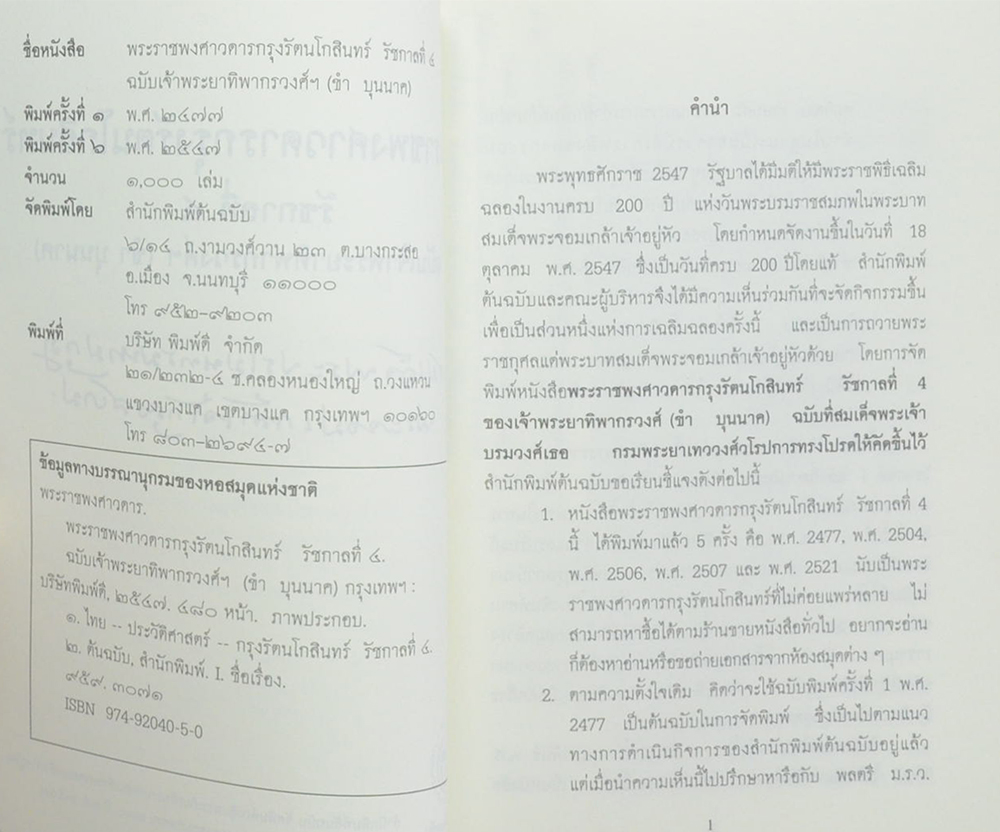 ชื่อหนังสือ พระราชพงศาวดารกรุงรัตนโกสินทร์ รัชกาลที่ ๔
ฉบับเจ้าพระยาทิพากรวงศ์ฯ (ขำ บุนนาค)
พิมพ์ครั้งที่ ๑ พ.ศ. ๒๔๗๗
พิมพ์ครั้งที่ ๖ พ.ศ. ๒๕๔๗
จำนวน ๑,๐๐๐ เล่ม
จัดพิมพ์โดย สำนักพิมพ์ต้นฉบับ
๖/๑๔ ถ.งามวงศ์วาน ๒๓ ต.บางกระสอ
อ.เมือง จ.นนทบุรี ๑๑๐๐๐
โทร ๙๕๒-๙๒๐๓
พิมพ์ที่ บริษัท พิมพ์ดี จำกัด
๒๑/๒๓๒-๔ ซ.คลองหนองใหญ่ ถ.วงแหวน
แขวงบางแค เขตบางแค กรุงเทพฯ ๑๐๑๖๐
โทร ๘๐๓-๒๖๙๔-๗
ข้อมูลทางบรรณานุกรมของหอสมุดแห่งชาติ
พระราชพงศาวดาร.
พระราชพงศาวดารกรุงรัตนโกสินทร์ รัชกาลที่ ๔.
ฉบับเจ้าพระยาทิพากรวงศ์ฯ (ขำ บุนนาค) กรุงเทพฯ :
บริษัทพิมพ์ดี, ๒๕๔๗. ๔๘๐ หน้า. ภาพประกอบ.
๑. ไทย -- ประวัติศาสตร์ -- กรุงรัตนโกสินทร์ รัชกาลที่ ๔.
๒. ต้นฉบับ, สำนักพิมพ์. I. ชื่อเรื่อง.
๙๕๙. ๓๐๗๑
ISBN 974-92040-5-0
คำนำ
พระพุทธศักราช 2547 รัฐบาลได้มีมติให้มีพระราชพิธีเฉลิม
ฉลองในงานครบ 200 ปี แห่งวันพระบรมราชสมภพในพระบาท
สมเด็จพระจอมเกล้าเจ้าอยู่หัว โดยกำหนดจัดงานขึ้นในวันที่ 18
ตุลาคม พ.ศ. 2547 ซึ่งเป็นวันที่ครบ 200 ปีโดยแท้ สำนักพิมพ์
ต้นฉบับและคณะผู้บริหารจึงได้มีความเห็นร่วมกันที่จะจัดกิจกรรมขึ้น
เพื่อเป็นส่วนหนึ่งแห่งการเฉลิมฉลองครั้งนี้ และเป็นการถวายพระ
ราชกุศลแด่พระบาทสมเด็จพระจอมเกล้าเจ้าอยู่หัวด้วย โดยการจัด
พิมพ์หนังสือพระราชพงศาวดารกรุงรัตนโกสินทร์ รัชกาลที่ 4
ของเจ้าพระยาทิพากรวงศ์ (ขำ บุนนาค) ฉบับที่สมเด็จพระเจ้า
บรมวงศ์เธอ กรมพระยาเทววงศ์วโรปการทรงโปรดให้คัดขึ้นไว้
สำนักพิมพ์ต้นฉบับขอเรียนชี้แจงดังต่อไปนี้
1. หนังสือพระราชพงศาวดารกรุงรัตนโกสินทร์ รัชกาลที่ 4
นี้ ได้พิมพ์มาแล้ว 5 ครั้ง คือ พ.ศ. 2477, พ.ศ. 2504,
พ.ศ. 2506, พ.ศ. 2507 และ พ.ศ. 2521 นับเป็นพระ
ราชพงศาวดารกรุงรัตนโกสินทร์ที่ไม่ค่อยแพร่หลาย ไม่
สามารถหาซื้อได้ตามร้านขายหนังสือทั่วไป อยากจะอ่าน
ก็ต้องหาอ่านหรือขอถ่ายเอกสารจากห้องสมุดต่าง ๆ
2. ตามความตั้งใจเดิม คิดว่าจะใช้ฉบับพิมพ์ครั้งที่ 1 พ.ศ.
2477 เป็นต้นฉบับในการจัดพิมพ์ ซึ่งเป็นไปตามแนว
ทางการดำเนินกิจการของสำนักพิมพ์ต้นฉบับอยู่แล้ว
แต่เมื่อนำความเห็นนี้ไปปรึกษาหารือกับ พลตรี ม.ร.ว.
1